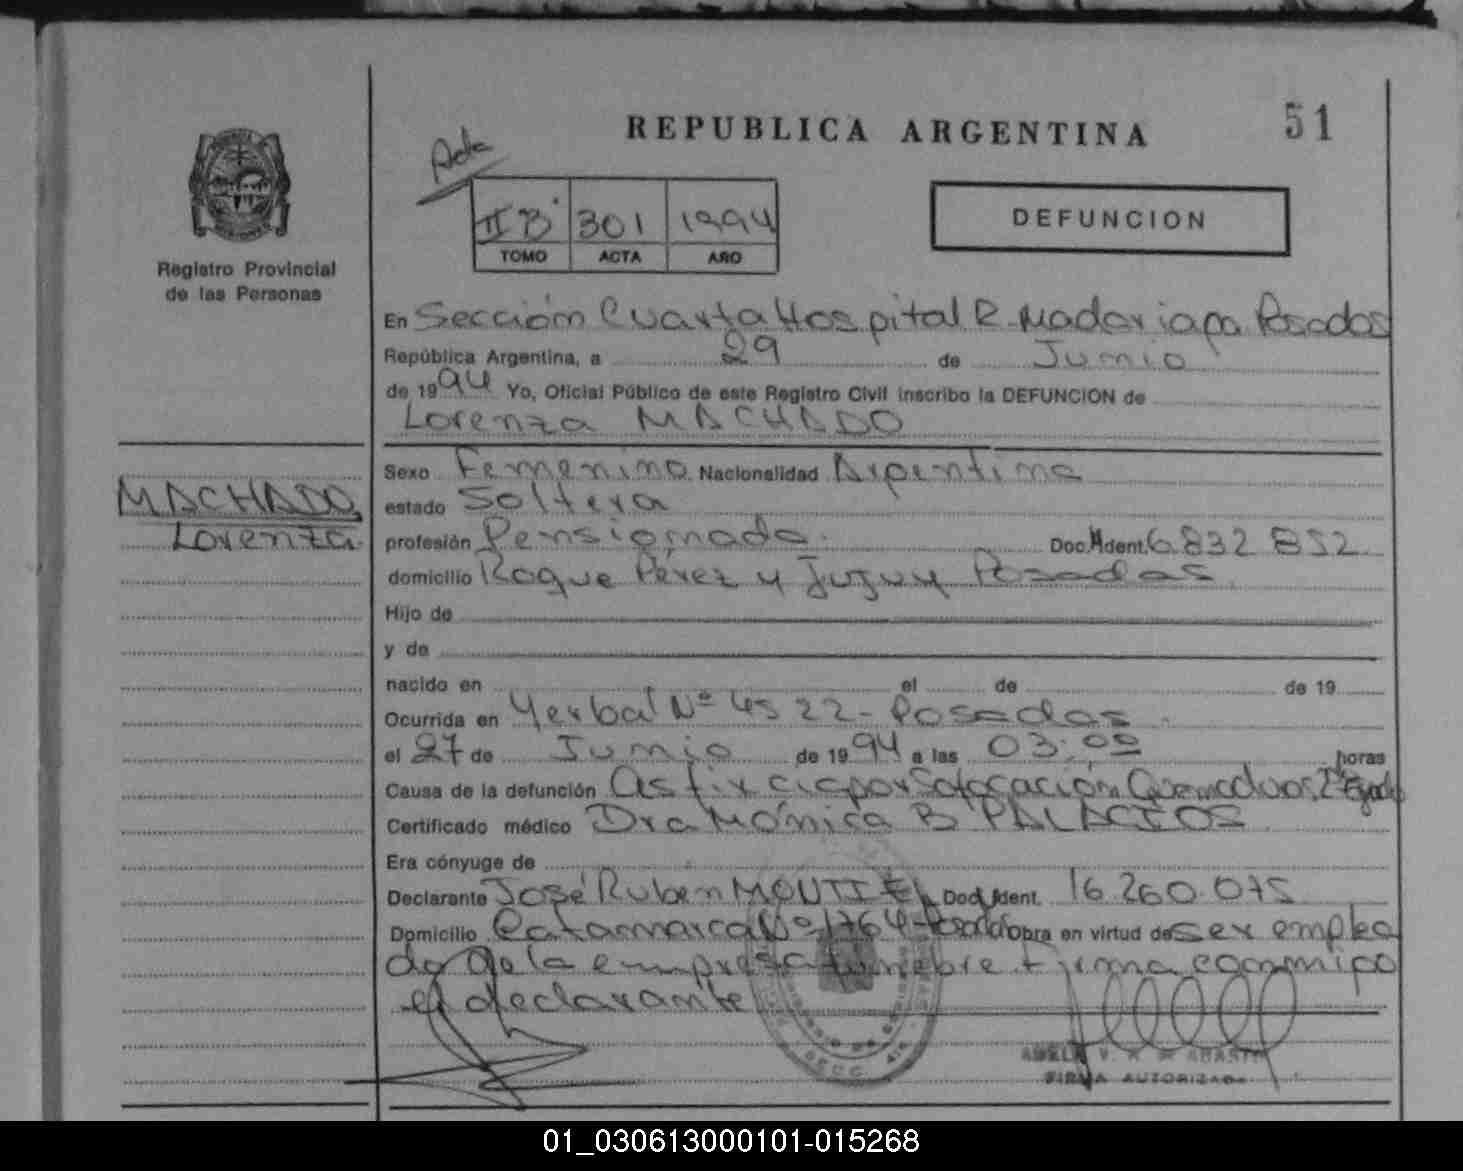 REPUBLICA ARGENTINA
51
Acta
II B 301 1994
TOMO ACTA AÑO
DEFUNCION
Registro Provincial
de las Personas
En Sección Cuarta Hospital R. Madariaga Posadas
República Argentina, a 29 de Junio
de 1994 Yo, Oficial Público de este Registro Civil inscribo la DEFUNCION de
Lorenza MACHADO
MACHADO,
Lorenza
Sexo Femenino Nacionalidad Argentina
estado Soltera
profesión Pensionada. Doc. Ident. 6.832.852
domicilio Roque Pérez y Jujuy Posadas.
Hijo de
y de
nacido en el de de 19
Ocurrida en Yerbal Nº 4522 - Posadas.
el 27 de Junio de 1994 a las 03:00 horas
Causa de la defunción Asfixia por Sofocación Quemaduras
Certificado médico Dra Mónica B PALACIOS
Era cónyuge de
Declarante José Rubén MONTIEL Doc. Ident. 16.260.075
Domicilio Catamarca Nº 1764-Posadas obra en virtud de ser emplea
do de la empresa fúnebre. firma conmigo
el declarante
FIRMA AUTORIZADA
01_030613000101-015268